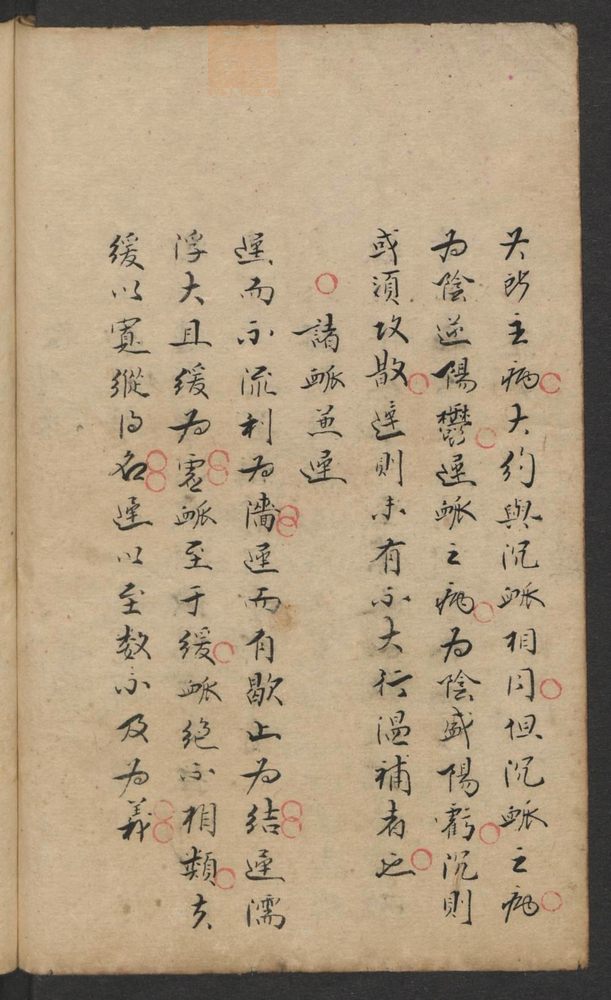 其所主病大約與沉脈相同但沉脈之病
為陰逆陽鬱遲脈之病為陰盛陽虧沉則
或須攻散遲則未有不大行溫補者也
諸脈兼遲
遲而不流利為濇遲而有歇止為結遲濡
浮大且緩為虛脈至于緩脈絕不相類夫
緩以寬縱得名遲以至數不及為義